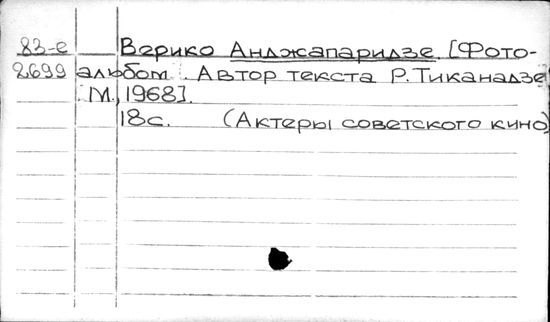 83-е Верико Анджапаридзе. [Фото-
2699 альбом. Автор текста Р. Тиканадзе
М., 1968].
18с. (Актеры советского кино)